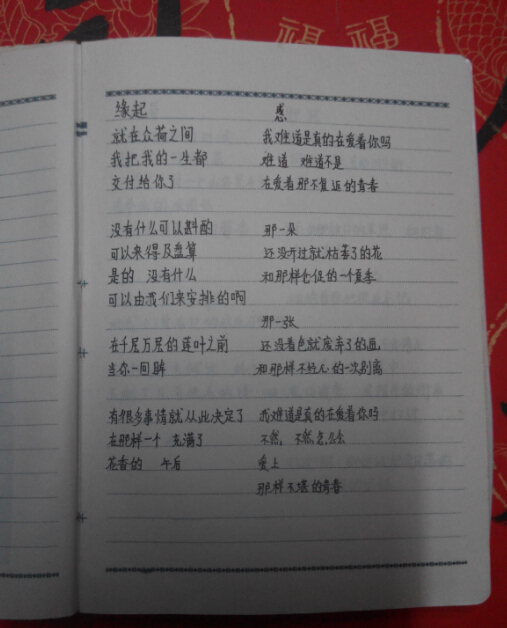 福 福
缘起
就在众荷之间
我把我的一生都
交付给你了
没有什么可以斟酌
可以来得及盘算
是的 没有什么
可以由我们来安排的啊
在千层万层的莲叶之前
当你一回眸
有很多事情就从此决定了
在那样一个 充满了
花香的 午后
惑
我难道是真的在爱着你吗
难道 难道不是
在爱着那不复返的青春
那一朵
还没开过就枯萎了的花
和那样仓促的一个夏季
那一张
还没着色就废弃了的画
和那样不经心的一次别离
我难道是真的在爱着你吗
不然, 不然怎么会
爱上
那样不堪的青春